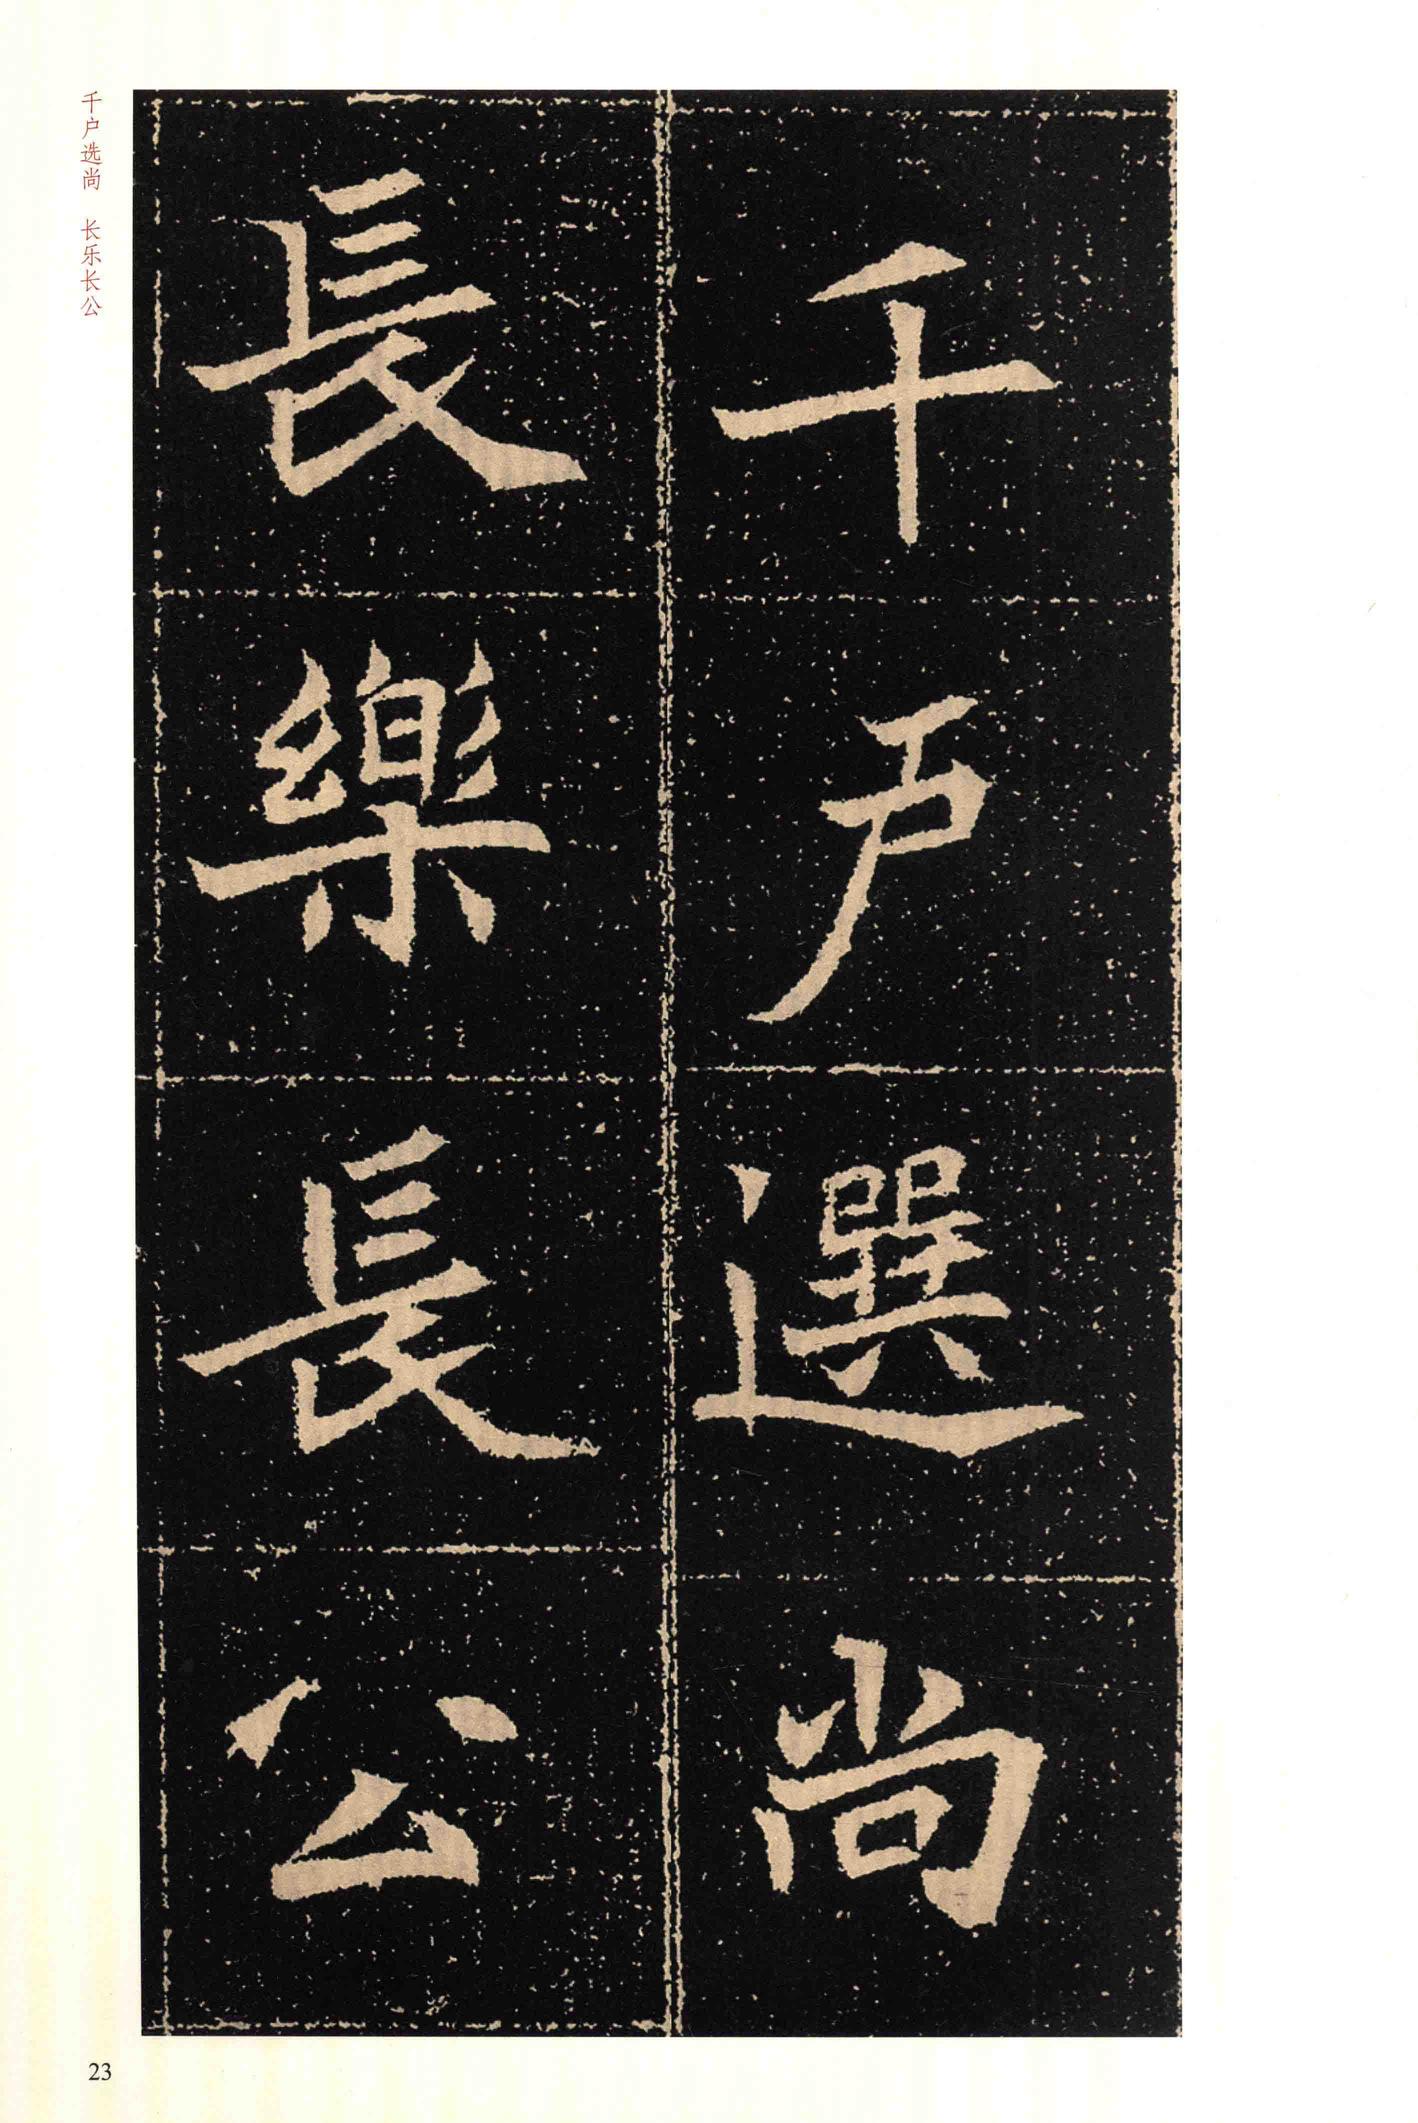 千戶選尚
長樂長公
千户选尚 长乐长公
23